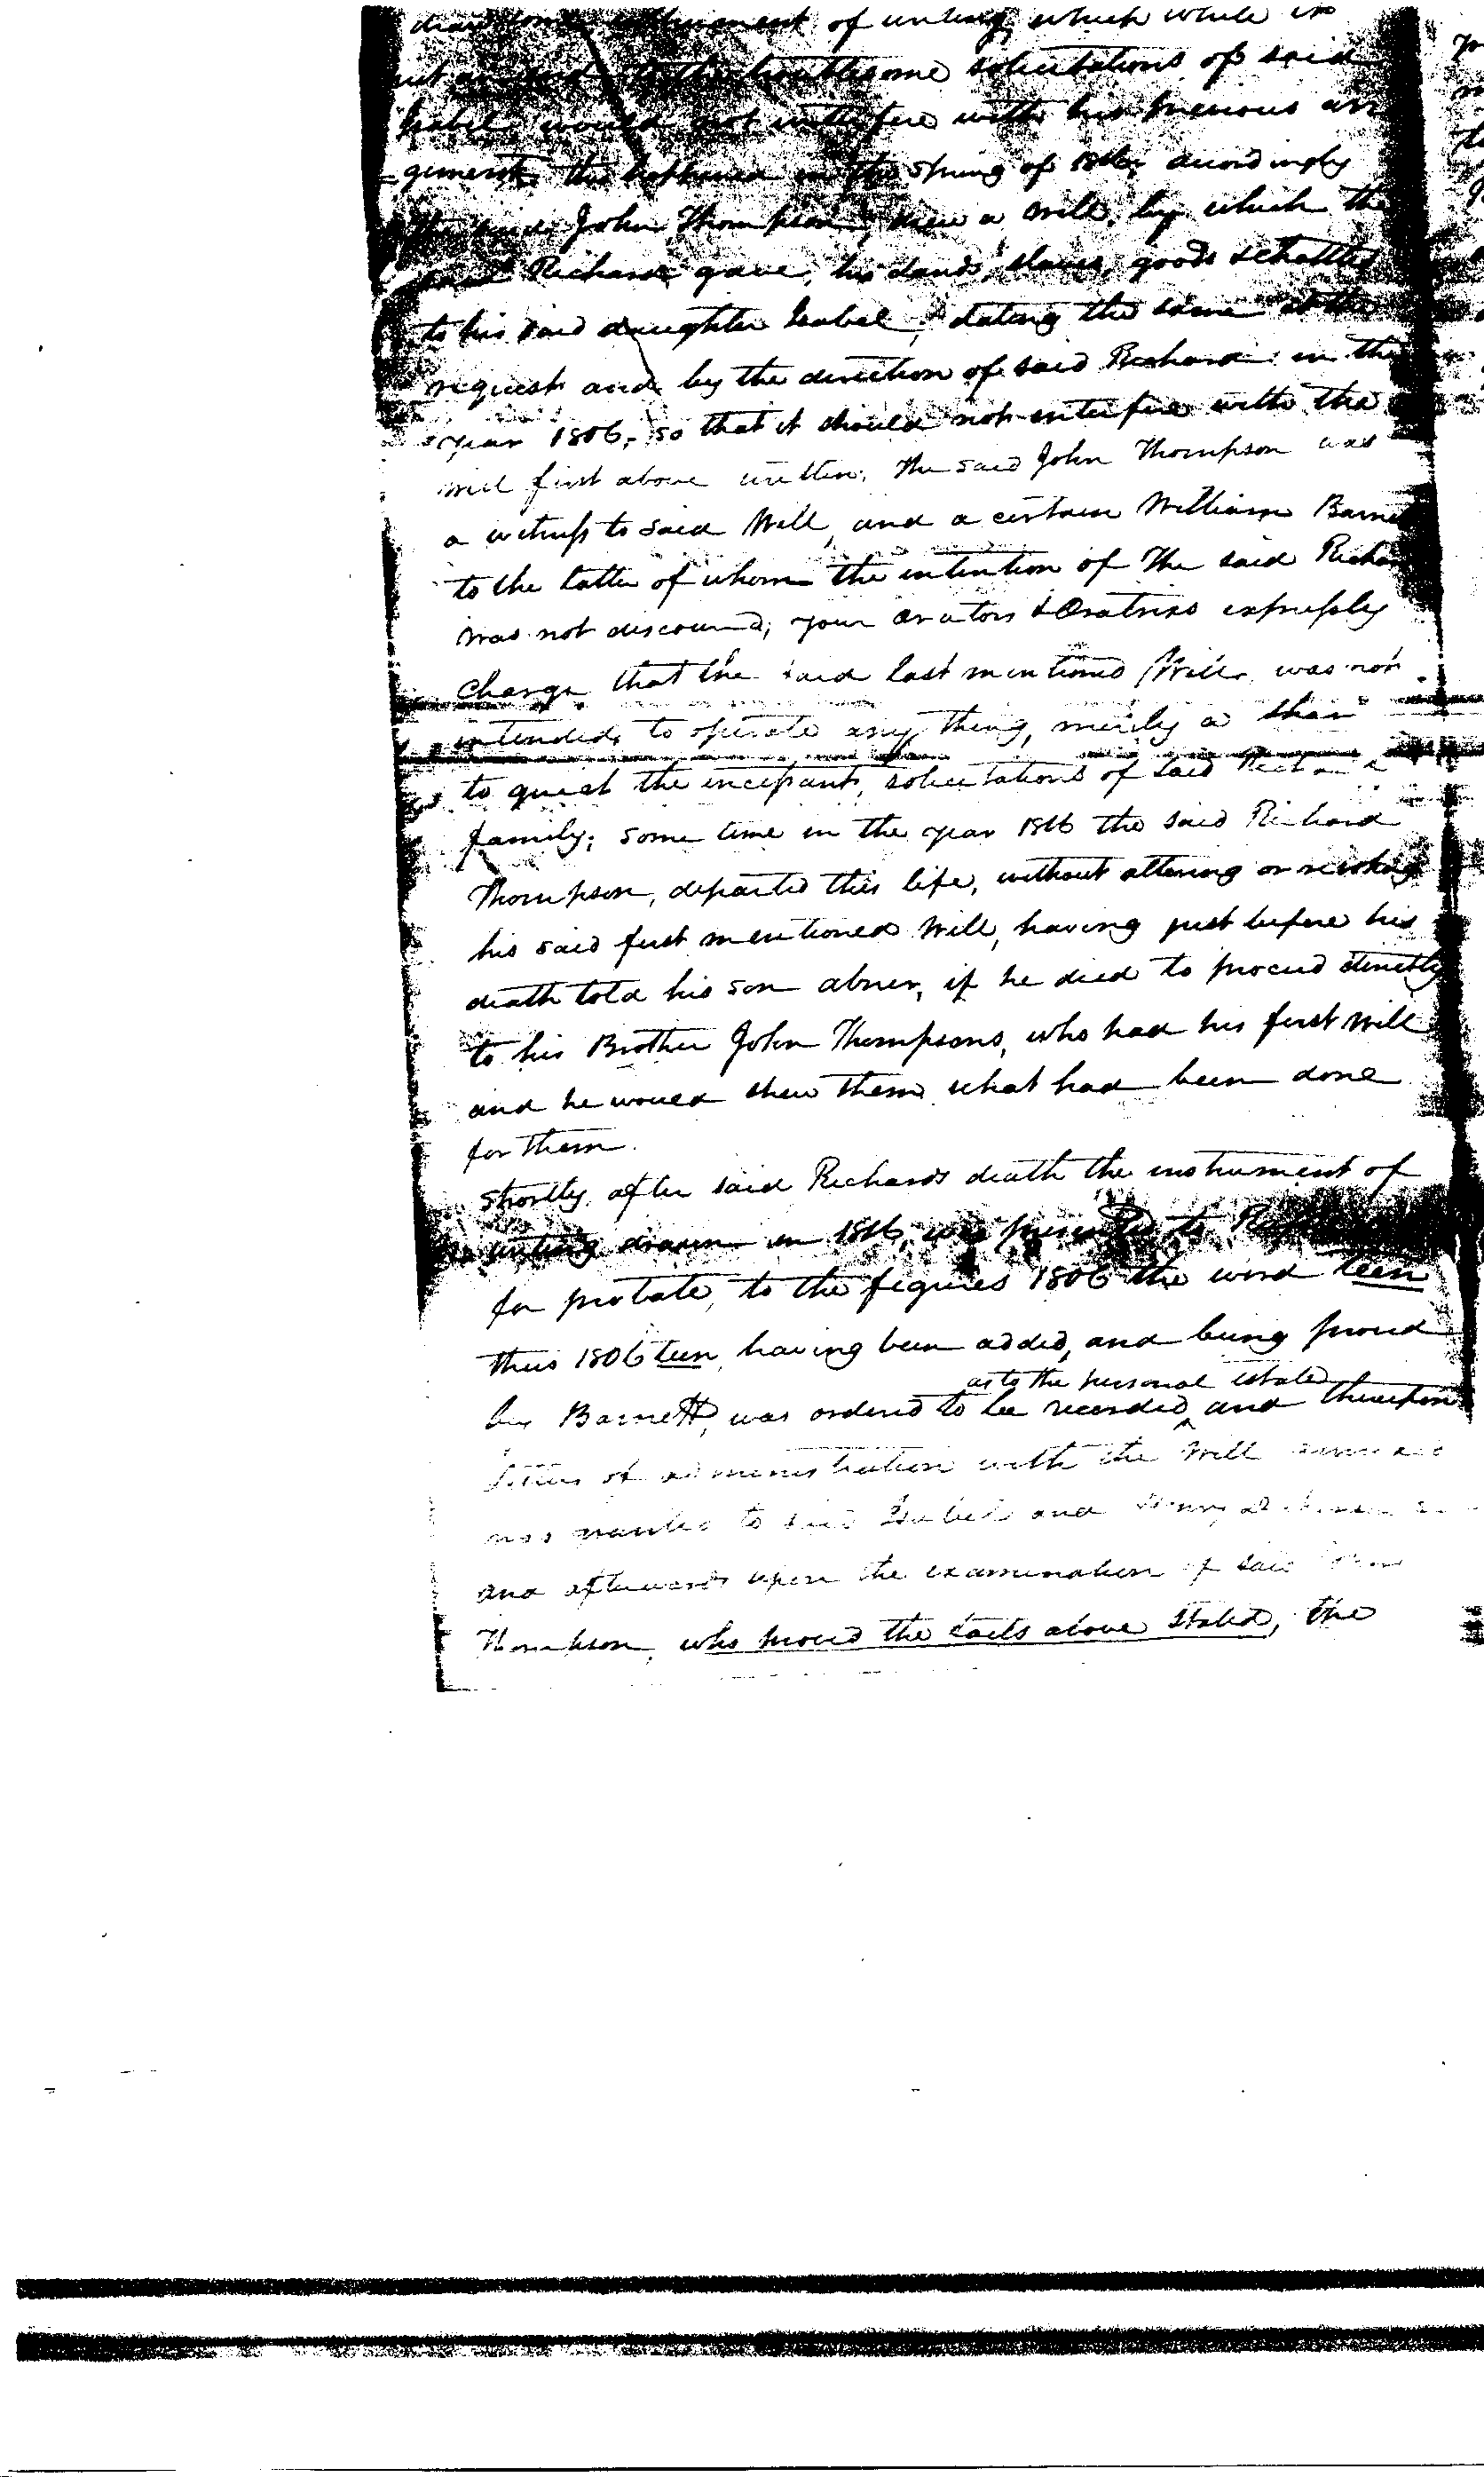 draw some instrument of writing, which while it
put an end to the troublesome solicitations of said
Isabel would not interfere with his previous arr
gement, this happened in the Spring of 1816, accordingly
the said John Thompson, drew a Will, by which the
said Richard gave, his lands, slaves, goods & chattles
to his said daughter Isabel, dating the same at the
request and by the direction of said Richard in the
year 1806, so that it should not interfere with the
will first above written, the said John Thompson was
a witness to said Will, and a certain William Barnet
to the latter of whom the intention of the said Richa
was not discovered, your orators & Oratrixs expressly
charge that the said last mentioned Will, was not
intended, to operate any thing, merely a sham
to quiet the incessant, solicitations of said Richard
family; some time in the year 1816 the said Richard
Thompson, departed this life, without altering or revoking
his said first mentioned Will, having just before his
death told his son abner, if he died to proceed directly
to his Brother John Thompsons, who had his first Will
and he would shew them what had been done
for them.
Shortly after said Richards death the instrument of
writing drawn in 1816, was presented to
for probate, to the figures 1806 the word teen
thus 1806teen, having been added, and being proved
as to the personal estate
by Barnett, was ordered to be recorded and thereupon
letters of administration with the Will annexed
was granted to said Isabel and
and afterwards upon the examination of said John
Thompson, who proved the facts above stated, the